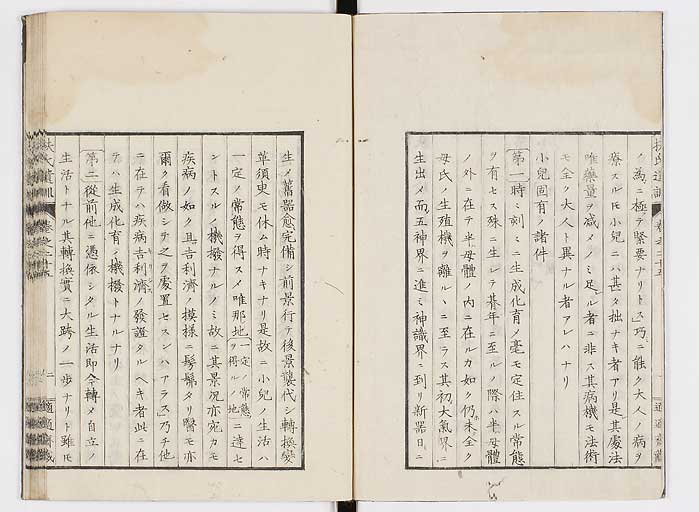 ノ為ニ極テ緊要ナリトス巧ニ能ク大人ノ病ヲ
療スルモ小兒ニハ甚タ拙ナキ者アリ是其處法
唯藥量ヲ减メノミ足ル者ニ非ス其病機モ法術
モ全ク大人ト異ナル者アレハナリ
小兒固有ノ諸件
第一時ミ刻ミニ生成化育ノ毫モ定住スル常態
ヲ有セス殊ニ生レテ暮年ニ至ルノ際ハ半母體
ノ外ニ在テ半母體ノ内ニ在ルカ如ク仍未全ク
母氏ノ生殖機ヲ離ルヽニ至ラス其初大氣界ニ
生出メ而五神界ニ進ミ神識界ニ到リ新器日ニ
扶氏遺訓
卷之二十五
適適齋藏
生ノ舊器愈完備シ前景行テ後景襲代シ轉換變
革須臾モ休ム時ナキナリ是故ニ小兒ノ生活ハ
一定ノ常態ヲ得スメ唯那地一定ノ常態ヲ得ルノ地ニ達セ
ントスルノ機撥ナルノミ故ニ其景况亦宛カモ
疾病ノ如ク且吉利濟ノ模樣ニ髣髴タリ醫モ亦
爾ク看做シテ之ヲ處置セスンハアラス乃チ他
ニ在テハ疾病吉利濟ノ發證タルヘキ者此ニ在
テハ生成化育ノ機撥トナルナリ
第二從前他ニ憑係シタル生活即今轉メ自立ノ
生活トナル其轉換實ニ大跨ノ一歩ナリト雖モ
扶氏遺訓
卷之二十五
二
適適齋藏